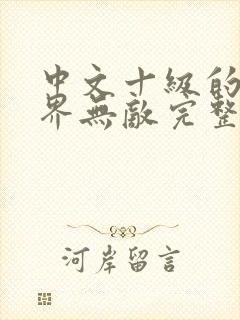 中文十級的
界無敵完整
河岸留言